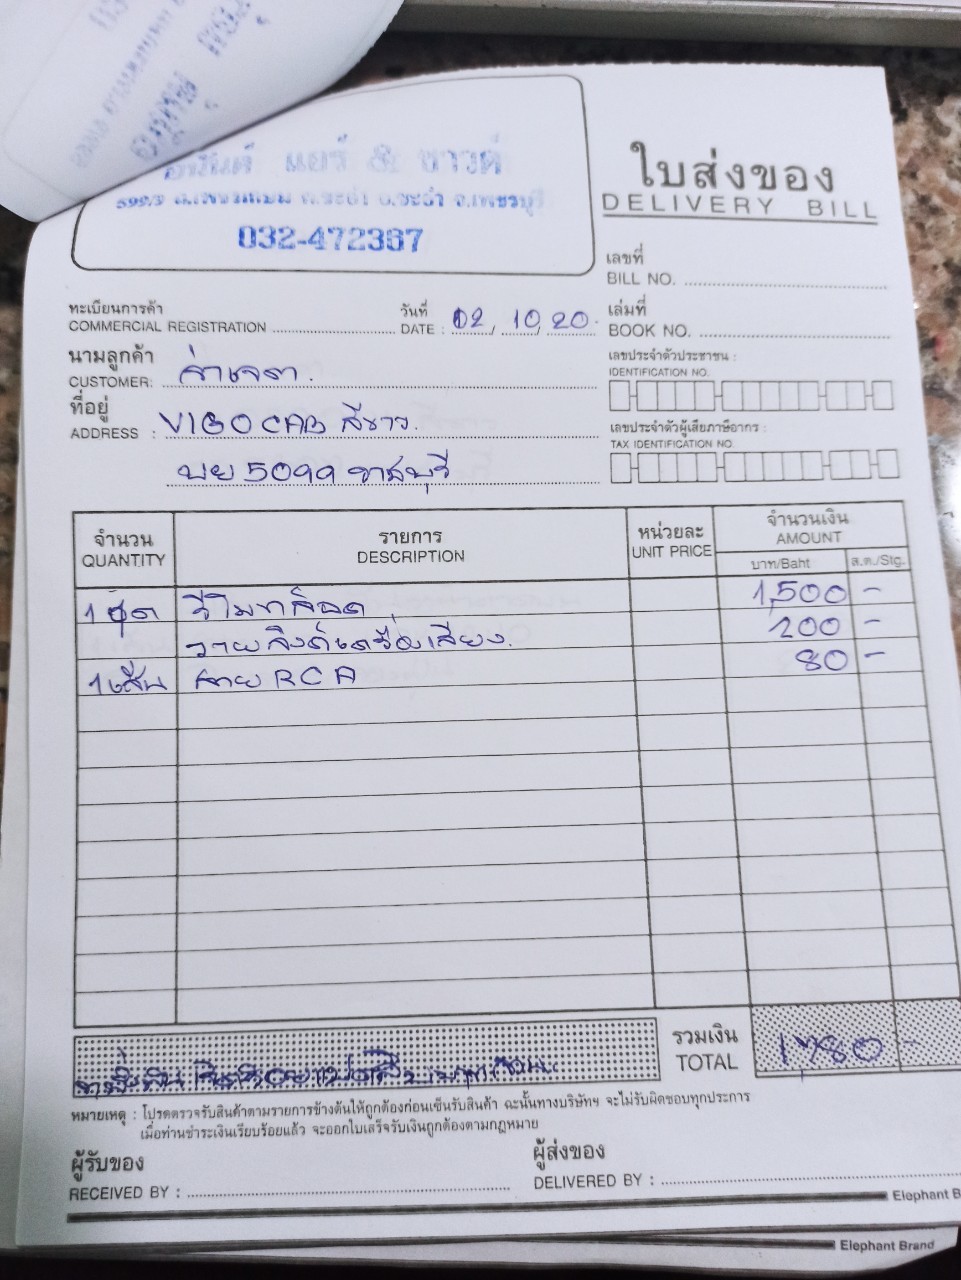 แอร์ & ซาวด์
599/9 ต.ชะอำ อ.ชะอำ จ.เพชรบุรี
032-472367
ใบส่งของ
DELIVERY BILL
เลขที่
BILL NO.
ทะเบียนการค้า
COMMERCIAL REGISTRATION
วันที่
DATE : 02, 10, 20.
เล่มที่
BOOK NO.
นามลูกค้า
CUSTOMER:
เลขประจำตัวประชาชน :
IDENTIFICATION NO.
ที่อยู่
ADDRESS : VIGO CAB สีขาว.
บย 5099 ราชบุรี
เลขประจำตัวผู้เสียภาษีอากร :
TAX IDENTIFICATION NO.
จำนวน
QUANTITY
รายการ
DESCRIPTION
หน่วยละ
UNIT PRICE
จำนวนเงิน
AMOUNT
บาท/Baht
ส.ต./Stg.
1 ชุด รีโมทล็อค 1,500 -
เครื่องเสียง. 200 -
1 เส้น สาย RCA 80 -
รวมเงิน
TOTAL 1,780 -
หมายเหตุ : โปรดตรวจรับสินค้าตามรายการข้างต้นให้ถูกต้องก่อนเซ็นรับสินค้า ฉะนั้นทางบริษัทฯ จะไม่รับผิดชอบทุกประการ
เมื่อท่านชำระเงินเรียบร้อยแล้ว จะออกใบเสร็จรับเงินถูกต้องตามกฎหมาย
ผู้รับของ
RECEIVED BY :
ผู้ส่งของ
DELIVERED BY :
Elephant B
Elephant Brand